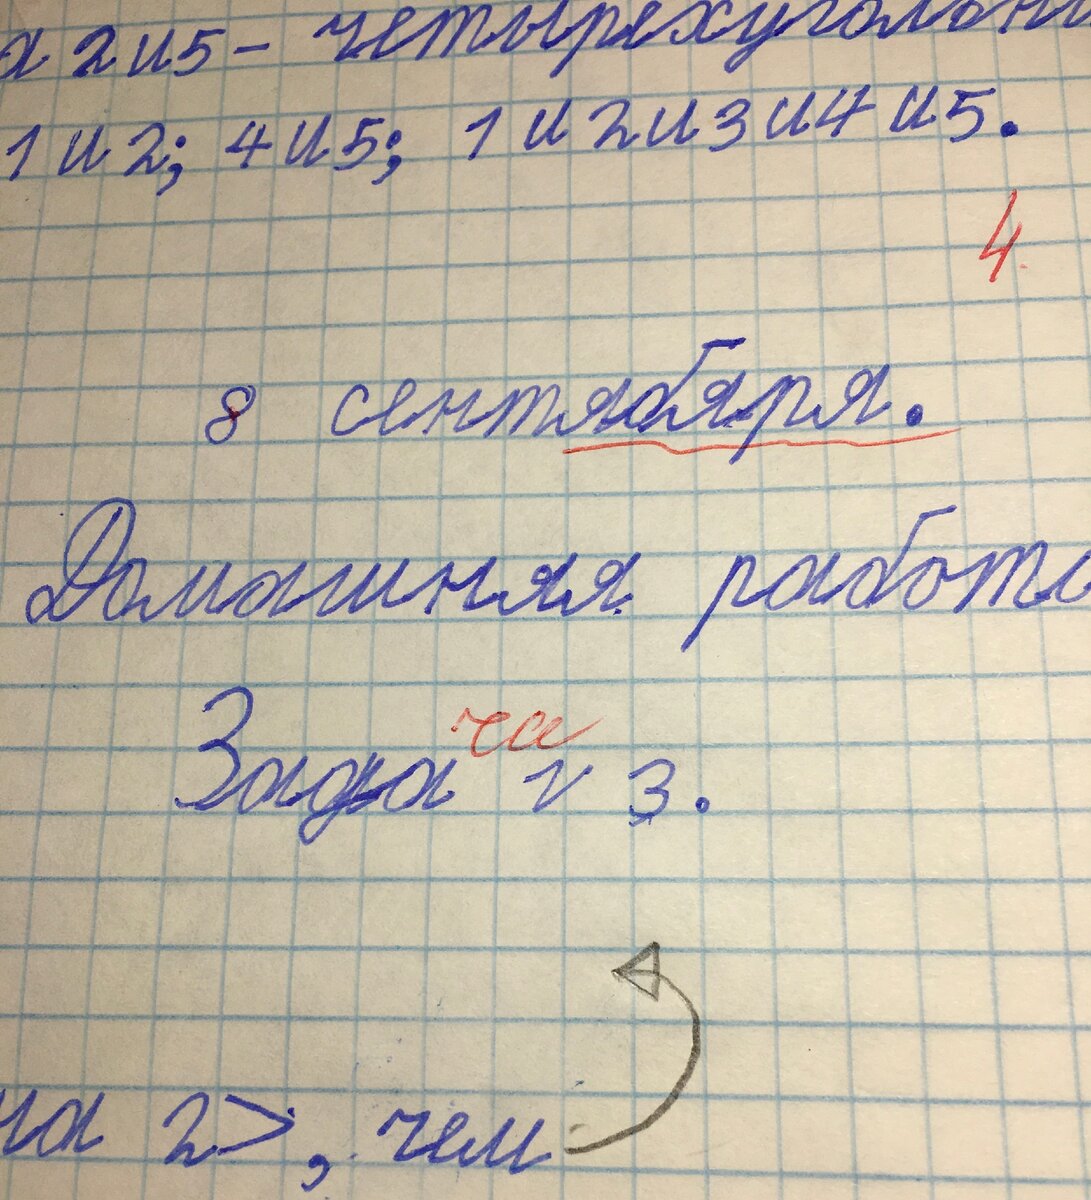 2 и 5 - четырехуголь
1 и 2; 4 и 5; 1 и 2 и 3 и 4 и 5.
4
8 сентября.
Домашняя работа
ча
Зада v 3.
на 2 >, чем